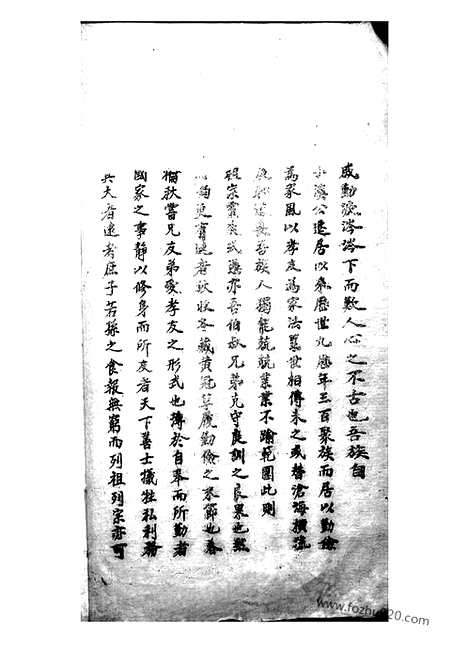 感動淚涔涔下而歎人心之不古也吾族自
溪公遷居以來歷世九歷年三百聚族而居以勤儉
為家風以孝友為家法篤世相傳未之或替滄海橫流
吾族人獨能兢兢業業不踰範圍此則
祖宗靈亦吾伯叔兄弟克守庭訓之良果也然
更者秋收冬藏黃冠草履勤儉之末節也春
禴秋嘗兄友弟愛孝友之形式也薄於自奉而所勤者
國家之事靜以修身而所友者天下善士犧牲私利務
其大者遠者庶子若孫之食報無窮而列祖列宗亦可
www.fozhu920.com